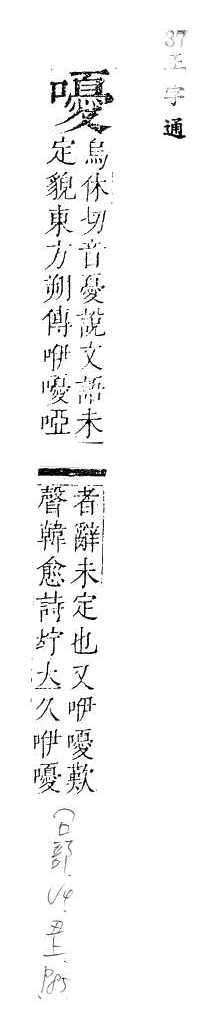 37正字通
嚘
烏休切音憂說文語未
定貌東方朔傳咿嚘啞
者辭未定也又咿嚘歎
聲韓愈詩竚立久咿嚘
(口部.V4.丑上.P85)